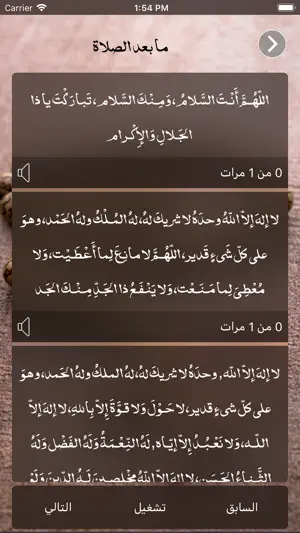 Carrier 1:54 PM
ما بعد الصلاة
اللّهُمَّ أَنْتَ السَّلامُ، وَمِنْكَ السَّلام، تَبارَكْتَ يا ذا
الجَلالِ وَالإِكْرام
0 من 1 مرات
لا إلهَ إلاّ اللّهُ وحدَهُ لا شريكَ لهُ، لهُ المُلْكُ ولهُ الحَمْد، وهوَ
على كلّ شَيءٍ قَدير، اللّهُمَّ لا مانِعَ لِما أَعْطَيْت، وَلا
مُعْطِيَ لِما مَنَعْت، وَلا يَنْفَعُ ذا الجَدِّ مِنْكَ الجَد
0 من 1 مرات
لا إلهَ إلاّ اللّه, وحدَهُ لا شريكَ لهُ، لهُ الملكُ ولهُ الحَمد، وهوَ
على كلّ شيءٍ قدير، لا حَوْلَ وَلا قوَّةَ إِلاّ بِاللهِ، لا إلهَ إلاّ
اللّـه، وَلا نَعْبُـدُ إِلاّ إيّـاه, لَهُ النِّعْمَةُ وَلَهُ الفَضْل وَلَهُ
الثَّـناءُ الحَسَن، لا إلهَ إلاّ اللّهُ مخْلِصـينَ لَـهُ الدِّينَ وَلَوْ
السابق تشغيل التالي